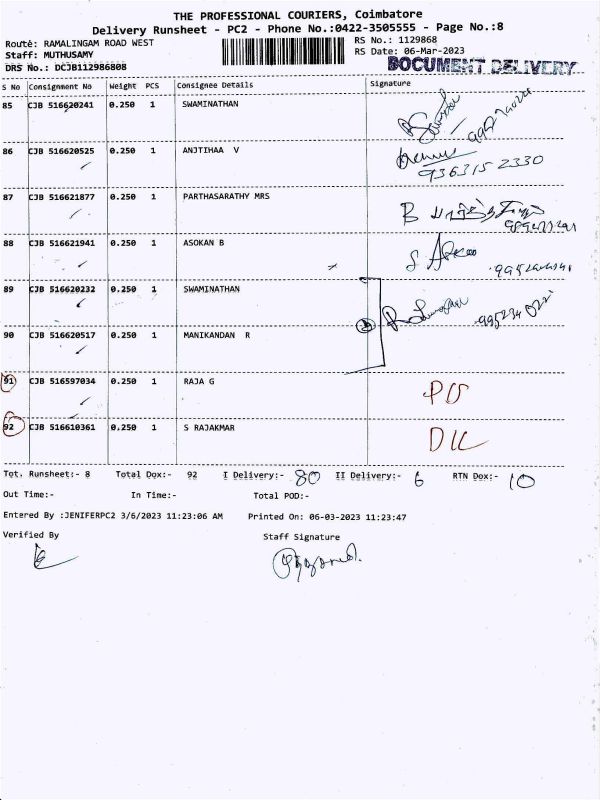 THE PROFESSIONAL COURIERS, Coimbatore
Delivery Runsheet - PC2 - Phone No.:0422-3505555 - Page No.:8
Route: RAMALINGAM ROAD WEST
RS No.: 1129868
Staff: MUTHUSAMY
RS Date: 06-Mar-2023
DRS No.: DCJB112986808
DOCUMENT DELIVERY
S No Consignment No Weight PCS Consignee Details Signature
85 CJB 516620241 0.250 1 SWAMINATHAN
86 CJB 516620525 0.250 1 ANJTIHAA V
9363152330
87 CJB 516621877 0.250 1 PARTHASARATHY MRS
B
88 CJB 516621941 0.250 1 ASOKAN B
S
89 CJB 516620232 0.250 1 SWAMINATHAN
90 CJB 516620517 0.250 1 MANIKANDAN R
91 CJB 516597034 0.250 1 RAJA G
92 CJB 516610361 0.250 1 S RAJAKMAR
Tot. Runsheet:- 8 Total Dox:- 92 I Delivery:- 80 II Delivery:- 6 RTN Dox:- 10
Out Time:- In Time:- Total POD:-
Entered By :JENIFERPC2 3/6/2023 11:23:06 AM Printed On: 06-03-2023 11:23:47
Verified By Staff Signature